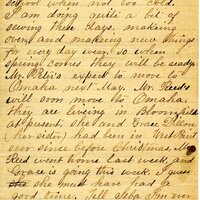 school when not too cold.
I am doing quite a bit of
sewing these days, making
over, and making new things
for every day wear, so when
spring comes they will be ready.
Mr. Peters expect to move to
Omaha next May. Mr. Reeds
will soon move to Omaha.
They are living in Bloomfield
at present, she and Grace
(her sister) had been in West Point
ever since before Christmas, Mrs.
Reed went home last week, and
Grace is going this week. I guess
she must have had a
good time. Tell I'm ever